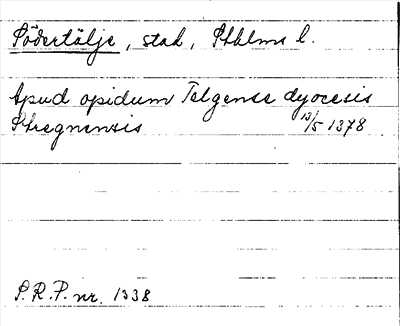 Södertälje, stad, Sthlms l.
Apud opidum Telgense dyocesis
Stregnensis 13/5 1378
S.R.P. nr. 1338